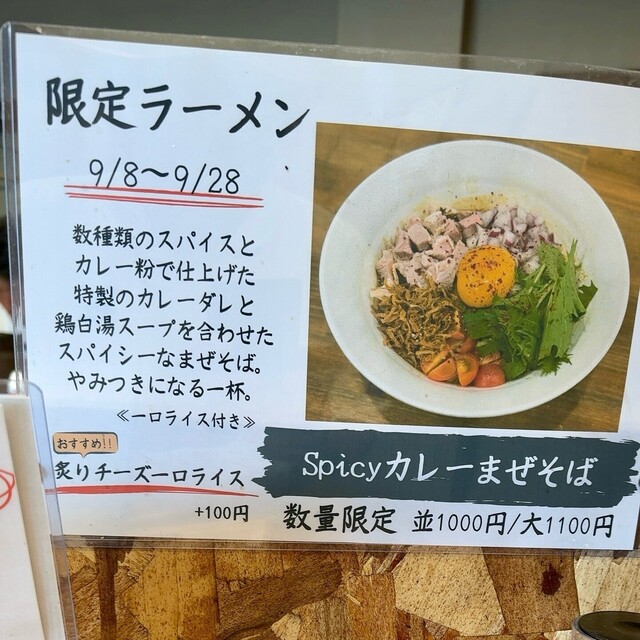 限定ラーメン
9/8〜9/28
数種類のスパイスと
カレー粉で仕上げた
特製のカレーダレと
鶏白湯スープを合わせた
スパイシーなまぜそば。
やみつきになる一杯。
≪一口ライス付き≫
おすすめ!!
炙りチーズ一口ライス
+100円
Spicyカレーまぜそば
数量限定 並1000円/大1100円